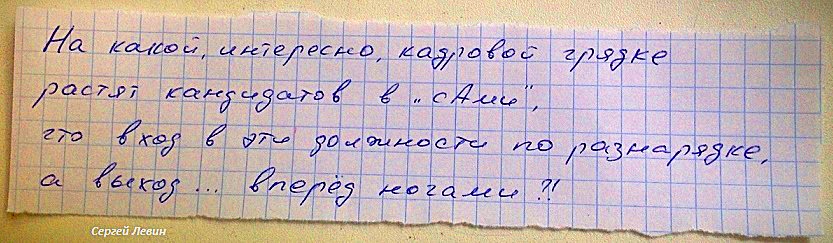 На какой, интересно, кадровой грядке
растят кандидатов в „сАми",
что вход в эти должности по разнарядке,
а выход... вперёд ногами?!
Сергей Левин